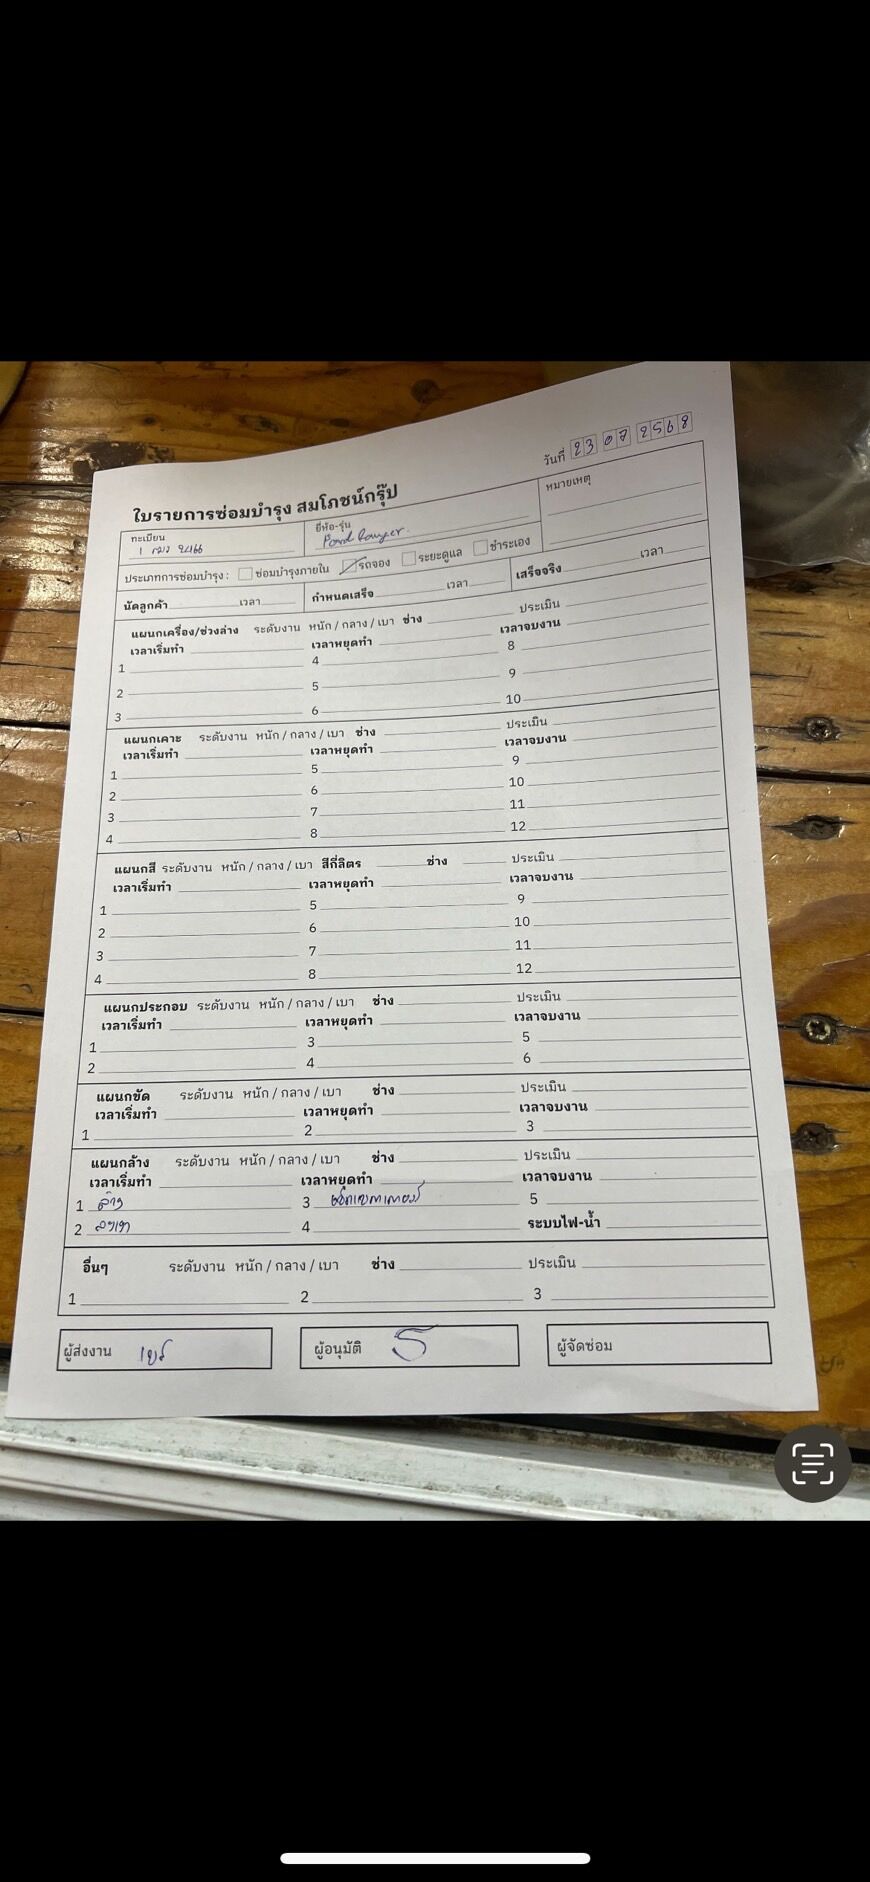 วันที่ 23 07 2568
ใบรายการซ่อมบำรุง สมโภชน์กรุ๊ป
ทะเบียน ยี่ห้อ-รุ่น หมายเหตุ
1 2466 Ford Ranger
ประเภทการซ่อมบำรุง : ซ่อมบำรุงภายใน รถจอง ระยะดูแล ชำระเอง
นัดลูกค้า เวลา กำหนดเสร็จ เวลา เสร็จจริง เวลา
แผนกเครื่อง/ช่วงล่าง ระดับงาน หนัก / กลาง / เบา ช่าง ประเมิน
เวลาเริ่มทำ เวลาหยุดทำ เวลาจบงาน
1 4 8
2 5 9
3 6 10
แผนกเคาะ ระดับงาน หนัก / กลาง / เบา ช่าง ประเมิน
เวลาเริ่มทำ เวลาหยุดทำ เวลาจบงาน
1 5 9
2 6 10
3 7 11
4 8 12
แผนกสี ระดับงาน หนัก / กลาง / เบา สีกี่ลิตร ช่าง ประเมิน
เวลาเริ่มทำ เวลาหยุดทำ เวลาจบงาน
1 5 9
2 6 10
3 7 11
4 8 12
แผนกประกอบ ระดับงาน หนัก / กลาง / เบา ช่าง ประเมิน
เวลาเริ่มทำ เวลาหยุดทำ เวลาจบงาน
1 3 5
2 4 6
แผนกขัด ระดับงาน หนัก / กลาง / เบา ช่าง ประเมิน
เวลาเริ่มทำ เวลาหยุดทำ เวลาจบงาน
1 2 3
แผนกล้าง ระดับงาน หนัก / กลาง / เบา ช่าง ประเมิน
เวลาเริ่มทำ เวลาหยุดทำ เวลาจบงาน
1 ล้าง 3 5
2 4 ระบบไฟ-น้ำ
อื่นๆ ระดับงาน หนัก / กลาง / เบา ช่าง ประเมิน
1 2 3
ผู้ส่งงาน ผู้อนุมัติ ผู้จัดซ่อม